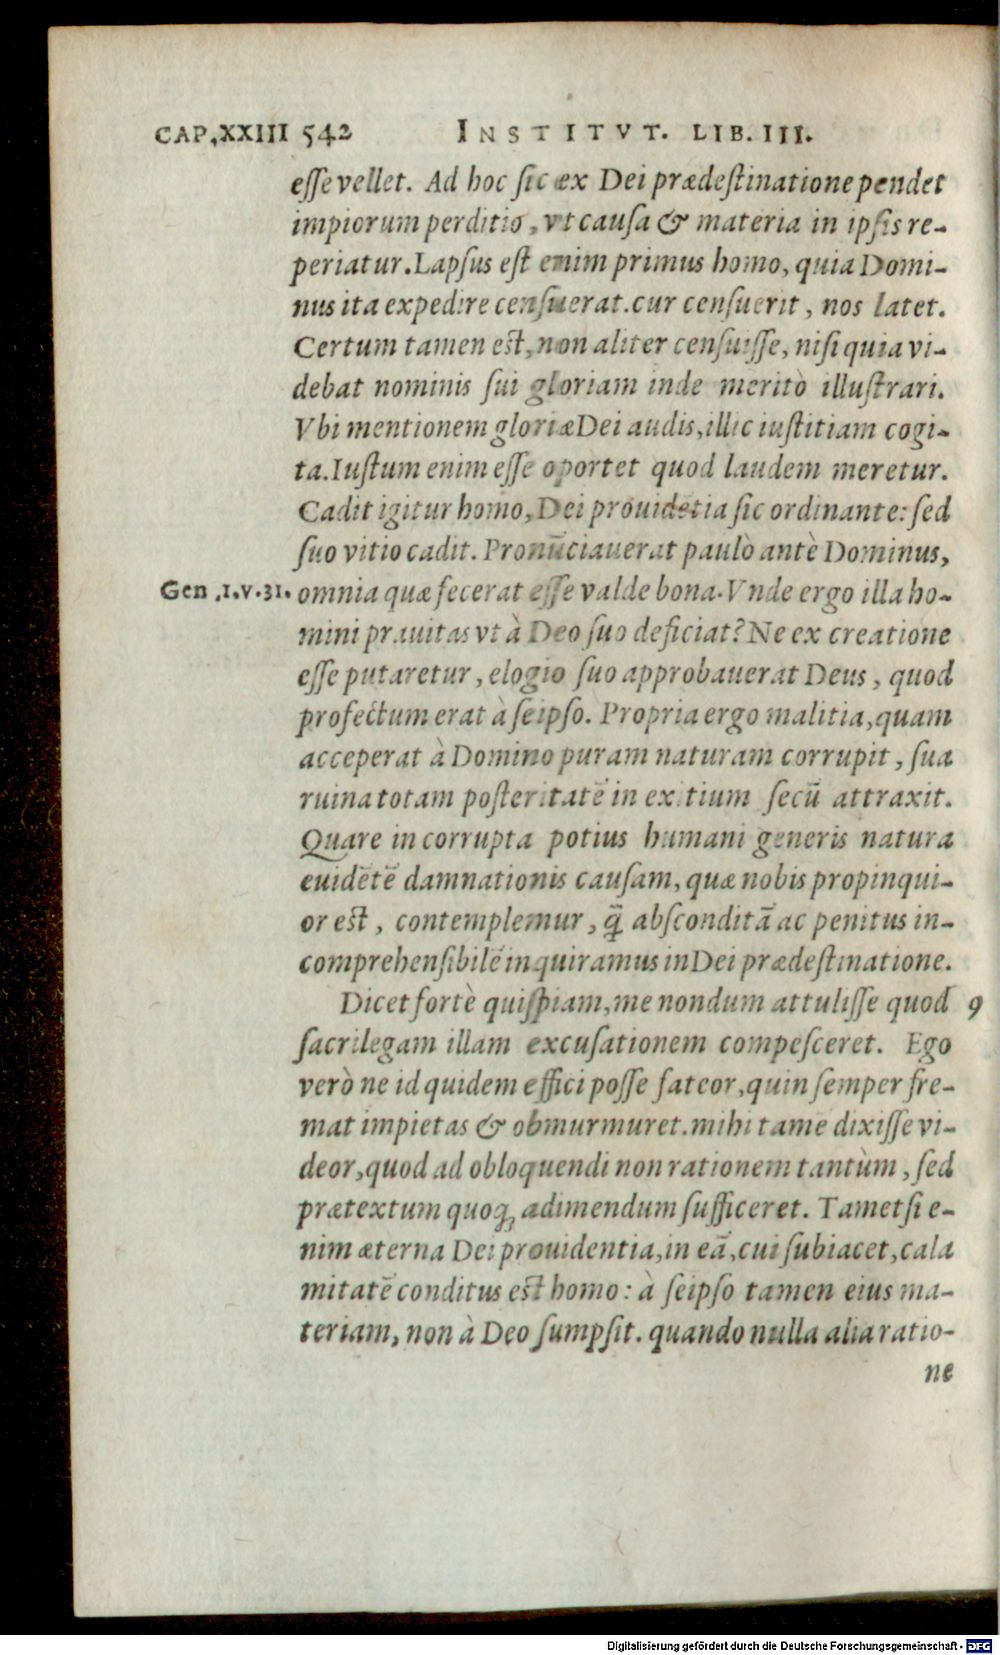 CAP.XXIII 542 INSTITVT. LIB. III.
esse vellet. Ad hoc sic ex Dei prædestinatione pendet
impiorum perditio, vt causa & materia in ipsis re-
periatur. Lapsus est enim primus homo, quia Domi-
nus ita expedire censuerat. cur censuerit, nos latet.
Certum tamen est, non aliter censuisse, nisi quia vi-
debat nominis sui gloriam inde meritò illustrari.
Vbi mentionem gloriæ Dei audis, illic iustitiam cogi-
ta. Iustum enim esse oportet quod laudem meretur.
Cadit igitur homo, Dei prouidētia sic ordinante: sed
suo vitio cadit. Pronūciauerat paulò antè Dominus,
Gen .1.v.31. omnia quæ fecerat esse valde bona. Vnde ergo illa ho-
mini prauitas vt à Deo suo deficiat? Ne ex creatione
esse putaretur, elogio suo approbauerat Deus, quod
profectum erat à seipso. Propria ergo malitia, quam
acceperat à Domino puram naturam corrupit, sua
ruina totam posteritatē in exitium secū attraxit.
Quare in corrupta potius humani generis natura
euidētē damnationis causam, quæ nobis propinqui-
or est, contemplemur, q̄ absconditā ac penitus in-
comprehensibilē inquiramus in Dei prædestinatione.
Dicet fortè quispiam, me nondum attulisse quod 9
sacrilegam illam excusationem compesceret. Ego
verò ne id quidem effici posse fateor, quin semper fre-
mat impietas & obmurmuret. mihi tamē dixisse vi-
deor, quod ad obloquendi non rationem tantùm, sed
prætextum quoq; adimendum sufficeret. Tametsi e-
nim æterna Dei prouidentia, in eā, cui subiacet, cala
mitatē conditus est homo: à seipso tamen eius ma-
teriam, non à Deo sumpsit. quando nulla alia ratio-
ne
Digitalisierung gefördert durch die Deutsche Forschungsgemeinschaft - DFG